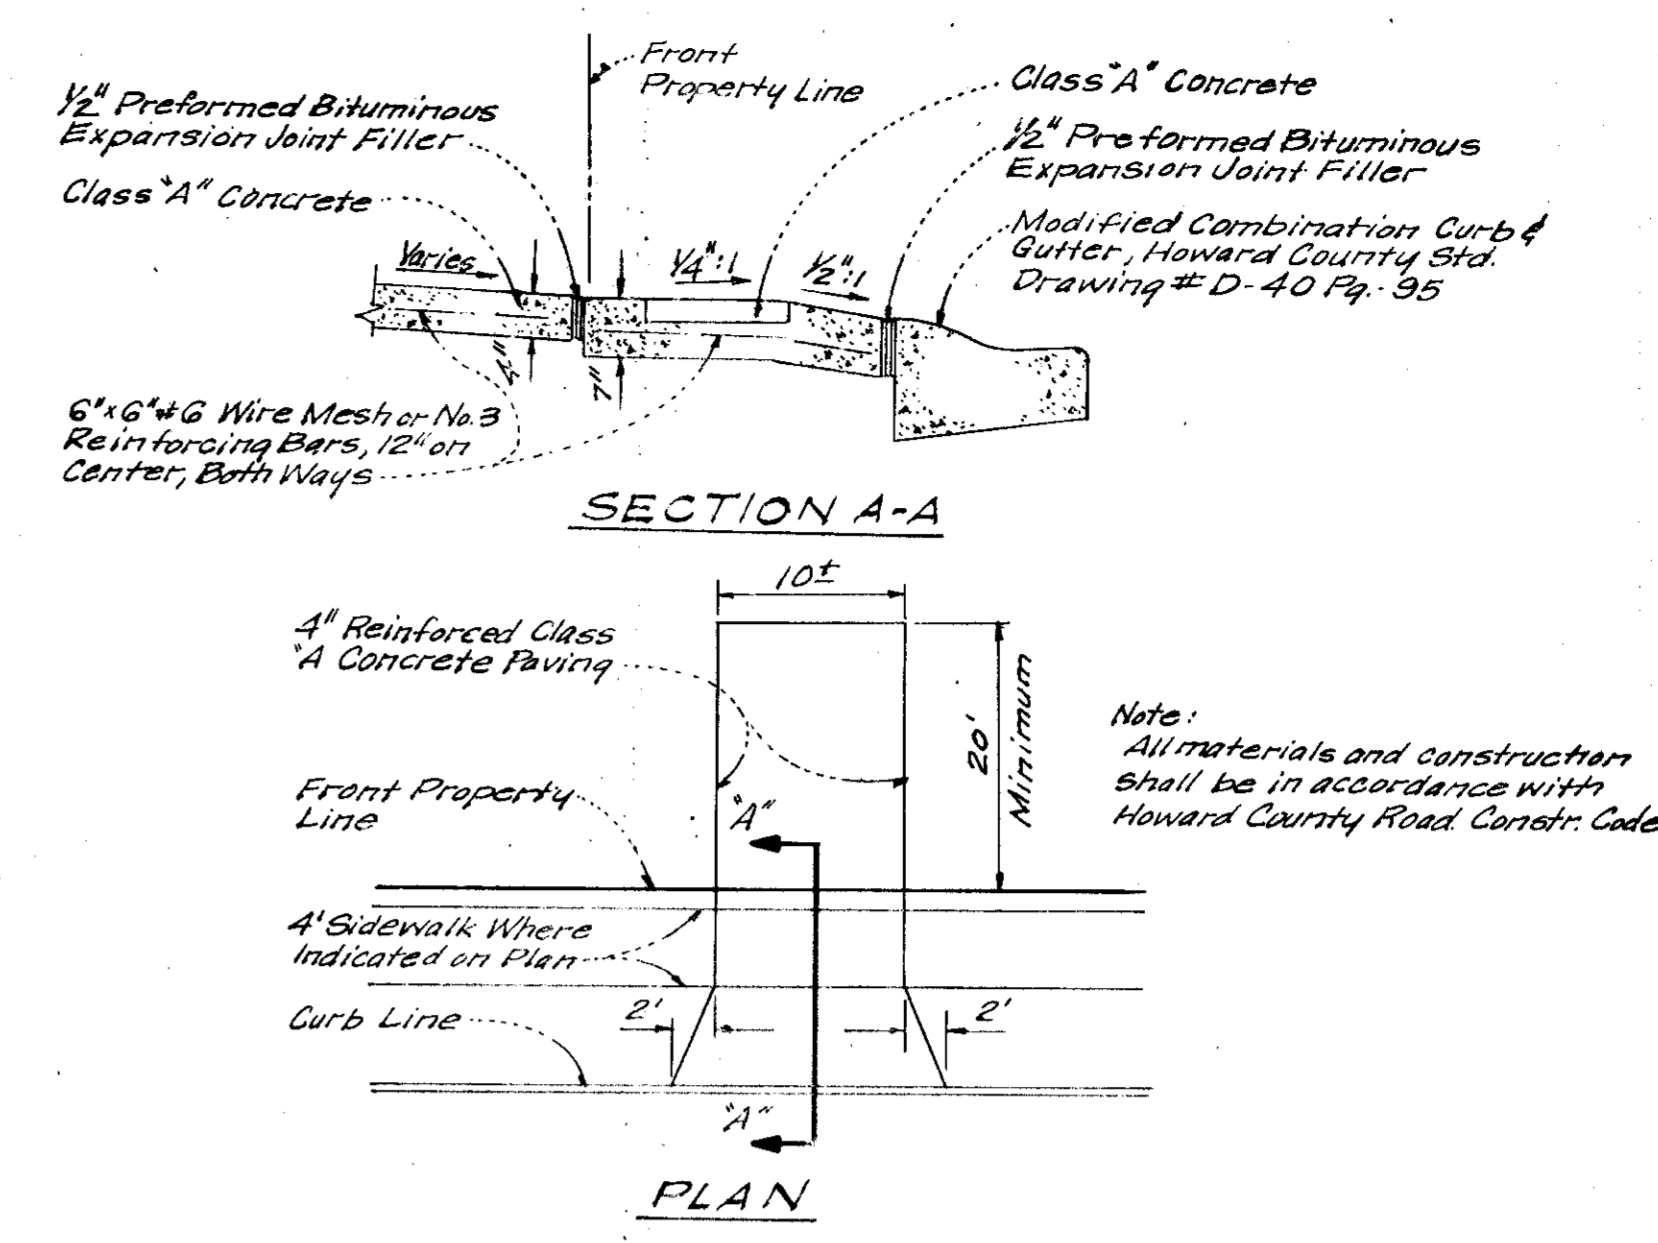 Front
Property Line
1/2" Preformed Bituminous
Expansion Joint Filler
Class "A" Concrete
Class "A" Concrete
1/2" Preformed Bituminous
Expansion Joint Filler
Modified Combination Curb &
Gutter, Howard County Std.
Drawing # D-40 Pg.-95
Varies
1/4":1
1/2":1
4"
7"
6"x6"#6 Wire Mesh or No.3
Reinforcing Bars, 12" on
Center, Both Ways
SECTION A-A
10±
4" Reinforced Class
"A Concrete Paving
20'
Minimum
Note:
All materials and construction
shall be in accordance with
Howard County Road. Constr. Code
Front Property
Line
"A"
4' Sidewalk Where
Indicated on Plan
Curb Line
2'
2'
"A"
PLAN